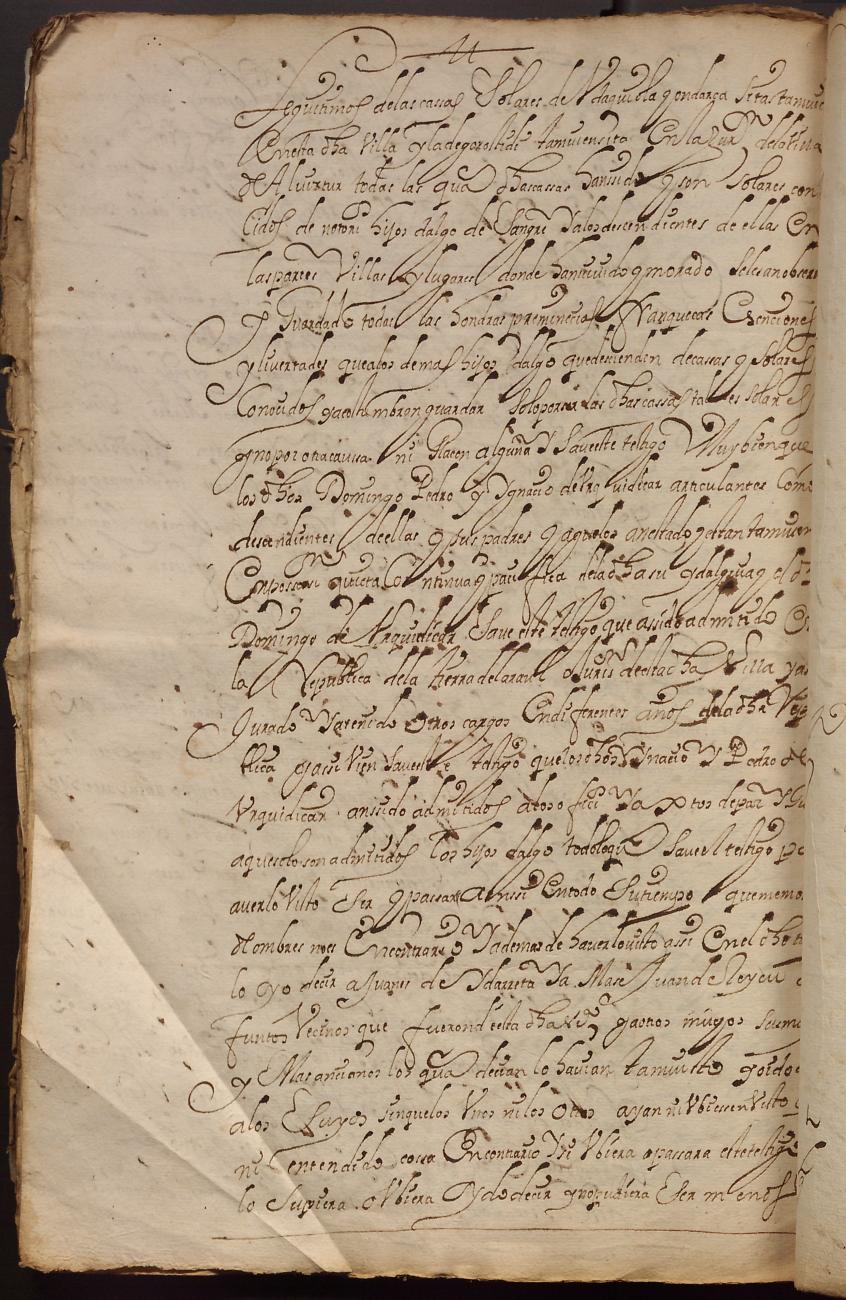 legitimos delas cassas Solares de Ydaquibla gondarça sitas tamui
Enesta dha Villa y la de gorostidi tamuien sita En la Jur.on dela villa
de Alvistur todas las quales dhas cassas han sido y son Solares con
cidos de notori hijos dalgo de Sangre Y alos descendientes de ellas En
las partes Villas y lugares donde han viuido y morado seles an obser
y Guardado todas las hondras preminecias franquecas Esenciones
y livertades que alos demas hijos dalgo que descienden de cassas y Solares
Conocidos y acostumbran guardar Solo por ser las dhas cassas tales solares
y no por otra caussa ni Raçon alguna Y Saue este testigo Muy bien que
los dhos Domingo Pedro y Ygnacio de Urquidicar articulantes Como
descendientes de ellas y sus padres y aguelos an estado y estan tamuien
En possesi quieta Continua y pacifica dela dha su ydalguia y el dho
Domingo de Urquidicar Saue este testigo que a sido admitido En
la Republica dela tierra de laraul Juris.on de esta dha Villa y a
Jurado Y a tenido otros cargos En diferentes años dela dha Repu
blica y assi vien Saue este testigo que los dhos Ygnacio Y Pedro de
Urquidicar an sido admitidos a los ofici Y actos de paz Y Gu
a que solo son admitidos los hijos dalgo todo lo qual Saue el testigo por
averlo Visto Ser y passar assi En todo Su tiempo que memo
de ombres no es En contrario Y ademas de hauerlo visto assi En el dho ti
lo oyo decir a Juanes de Ydarreta Ya Mase Juan de Leycu
funtos Vecinos que fueron d esta dha villa y a otros muchos
y Mas ancianos los quales decian lo hauian tamuien Visto y oido
a los Suyos sin que los Unos ni los Otros ayan ni Ubiessen Visto
ni entendido cossa En contrario Y si Ubiera o passara este testigo
lo Supiera o Ubiera oydo decir y no pudiera Ser menos